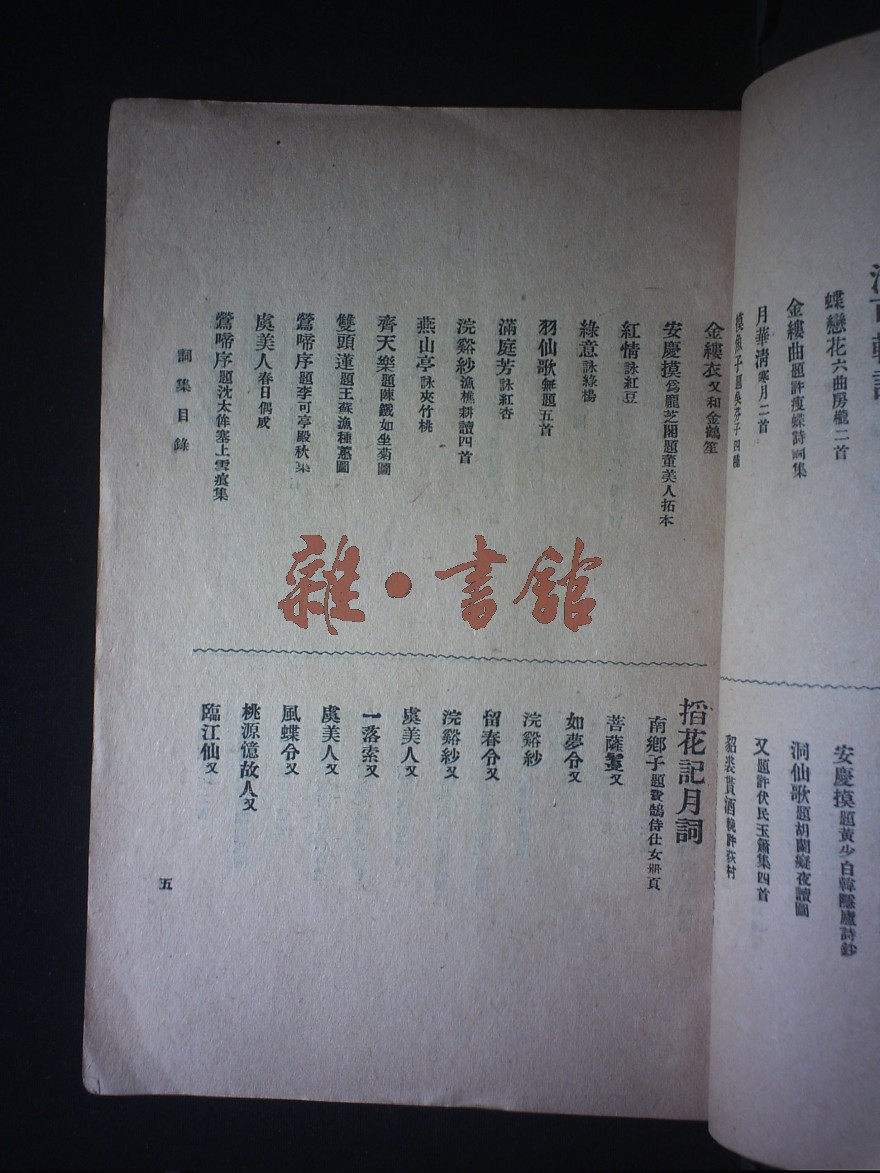 蝶戀花六曲房櫳二首
金縷曲題許瘦蝶詩詞集
月華清寒月二首
安慶摸題黃少白韓隱廬詩鈔
洞仙歌題胡蘭癡夜讀圖
又題許伏民玉簫集四首
金縷衣又和金鶴笙
安慶摸爲龐芝閣題董美人拓本
紅情詠紅豆
綠意詠綠楊
羽仙歌無題五首
滿庭芳詠紅杏
浣谿紗漁樵耕讀四首
燕山亭詠夾竹桃
齊天樂題陳鐵如坐菊圖
雙頭蓮題王蘇漁種蕙圖
鶯啼序題李可亭殿秋
虞美人春日偶成
鶯啼序題沈太侔塞上雪痕集
搯花記月詞
南鄉子題費鵠侍仕女册頁
菩薩蠻又
如夢令又
浣谿紗
留春令又
浣谿紗又
虞美人又
一落索又
虞美人又
風蝶令又
桃源憶故人又
臨江仙又
詞集目錄
五
雜·書館